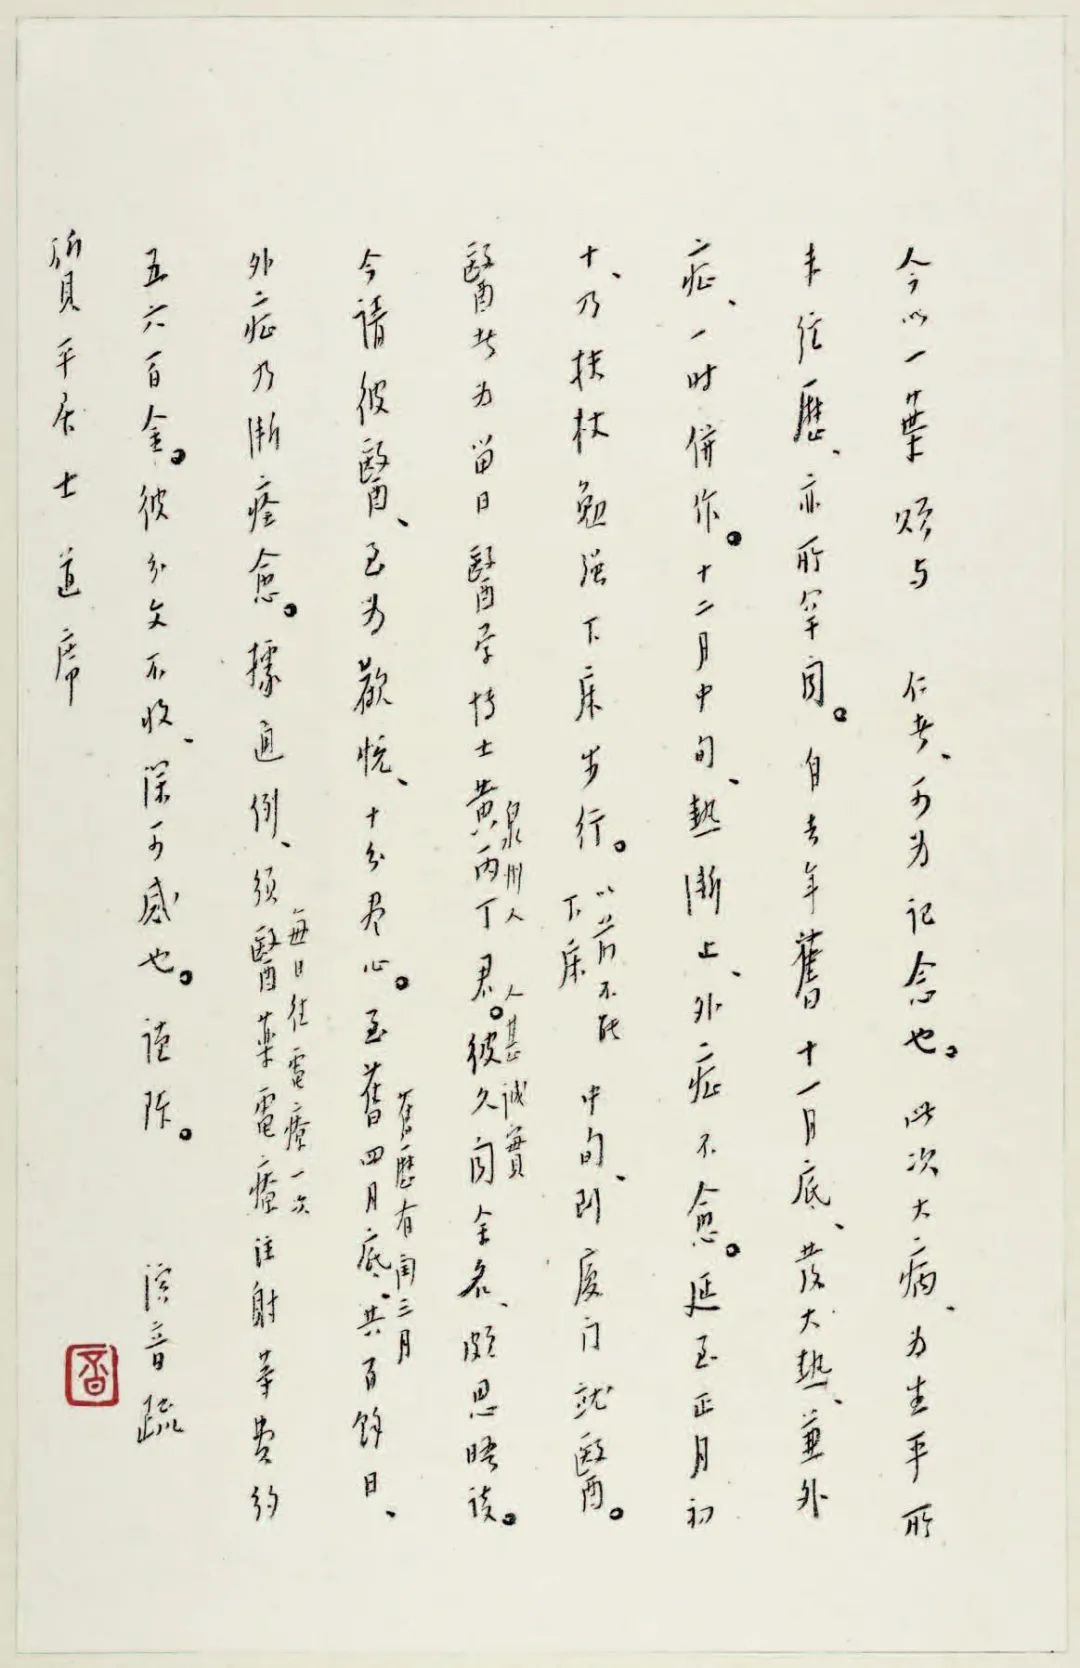 今以一葉贻与　仁者、可为记念也。此次大病、为生平所
未经歷、亦所罕闻。自去年舊十一月底、发大热、兼外
症、一时併作。十二月中旬、热渐止、外症不愈。延至正月初
十、乃扶杖勉强下床步行。以前不能下床　中旬、到厦门就醫。
醫者为留日醫学博士黄丙丁君。泉州人人甚诚實彼久闻余名、颇思晤谈。
今请彼醫、至为歡悦、十分尽心。至舊四月底、舊歷有闰三月共百馀日、
外症乃渐痊愈。據通例、须醫藥電療注射等费约每日往電療一次
五六百金。彼分文不收、深可感也。谨陈。　演音疏
質平居士　道席
音